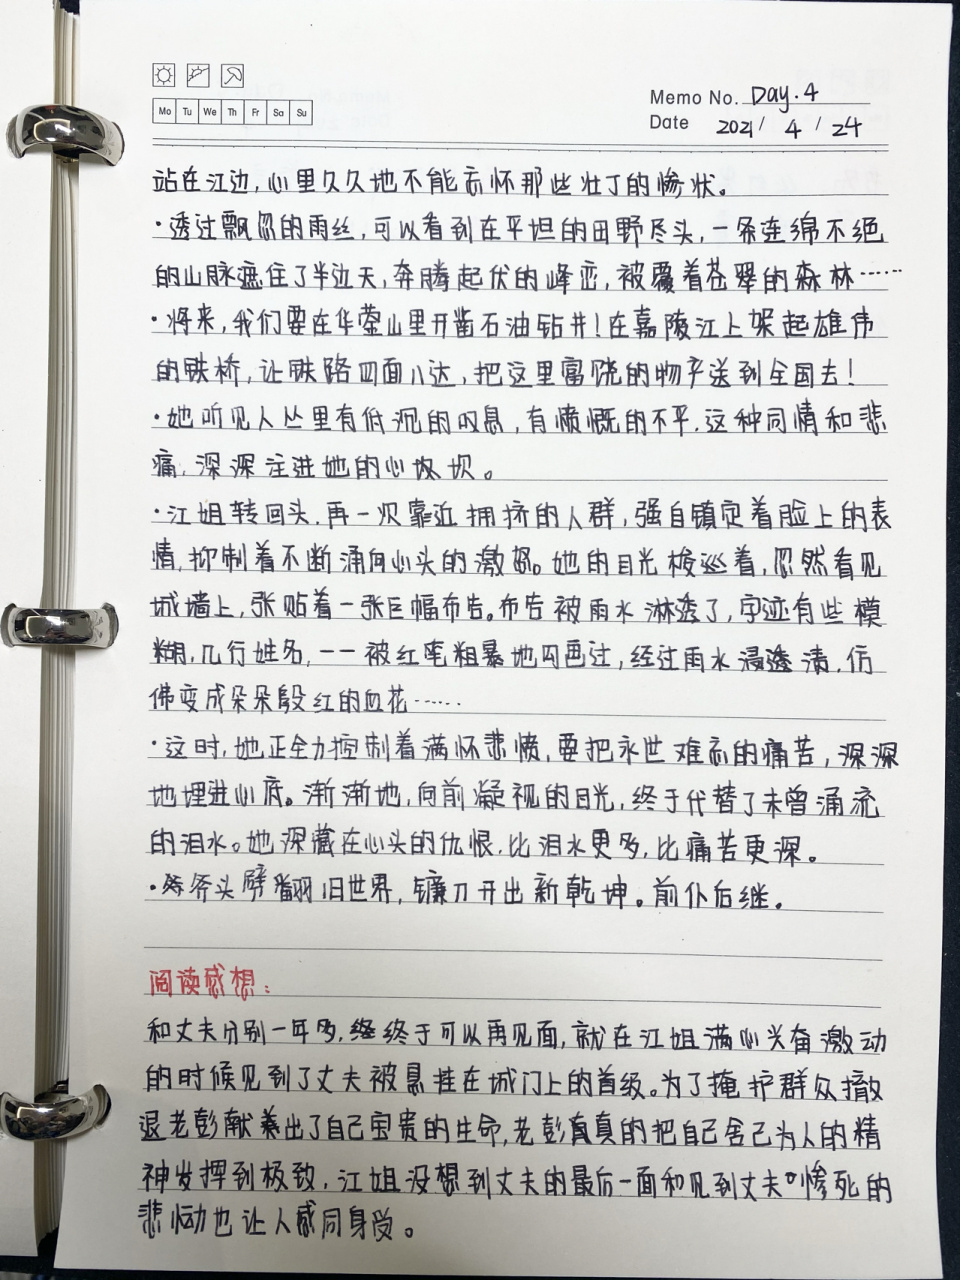 Mo Tu We Th Fr Sa Su
Memo No. Day.4
Date 2021/ 4 / 24
站在江边,心里久久地不能忘怀那些壮丁的惨状。
·透过飘忽的雨丝,可以看到在平坦的田野尽头,一条连绵不绝
的山脉遮住了半边天,奔腾起伏的峰峦,被覆着苍翠的森林……
·将来,我们要在华蓥山里开凿石油钻井!在嘉陵江上架起雄伟
的铁桥,让铁路四面八达,把这里富饶的物产送到全国去!
·她听见人丛里有低沉的叹息,有愤慨的不平,这种同情和悲
痛,深深注进她的心坎。
·江姐转回头,再一次靠近拥挤的人群,强自镇定着脸上的表
情,抑制着不断涌向心头的激怒。她的目光梭巡着,忽然看见
城墙上,张贴着一张巨幅布告。布告被雨水淋透了,字迹有些模
糊,几行姓名,一一被红笔粗暴地勾画过,经过雨水浸透渍,仿
佛变成朵朵殷红的血花……
·这时,她正全力控制着满怀悲愤,要把永世难忘的痛苦,深深
地埋进心底。渐渐地,向前凝视的目光,终于代替了未曾涌流
的泪水。她深藏在心头的仇恨,比泪水更多,比痛苦更深。
·斧头劈翻旧世界,镰刀开出新乾坤。前仆后继。
阅读感想:
和丈夫分别一年多,终于可以再见面,就在江姐满心兴奋激动
的时候见到了丈夫被悬挂在城门上的首级。为了掩护群众撤
退老彭献养出了自己宝贵的生命,老彭真真的把自己舍己为人的精
神发挥到极致,江姐没想到丈夫的最后一面和见到丈夫惨死的
悲恸也让人感同身受。